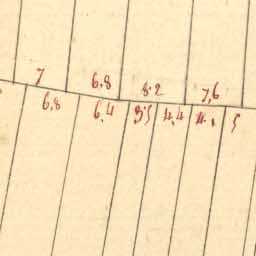 7 6.8 8.2 7,6
6,8 6.4 3.5 4,4 4.1 5